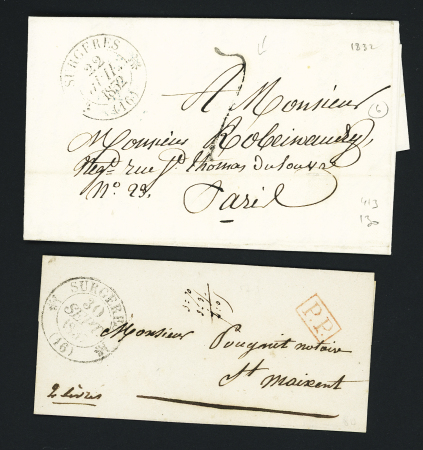 SURGERES
22
1832
(16)
1832
A Monsieur
6
Monsieur Robinaud,
Négt. rue St. thomas du Louvre
N°. 29.
Paris
130
SURGERES
30
SEPT
(16)
P.P.
Monsieur Pougnet notaire
St Maixent
2 livres